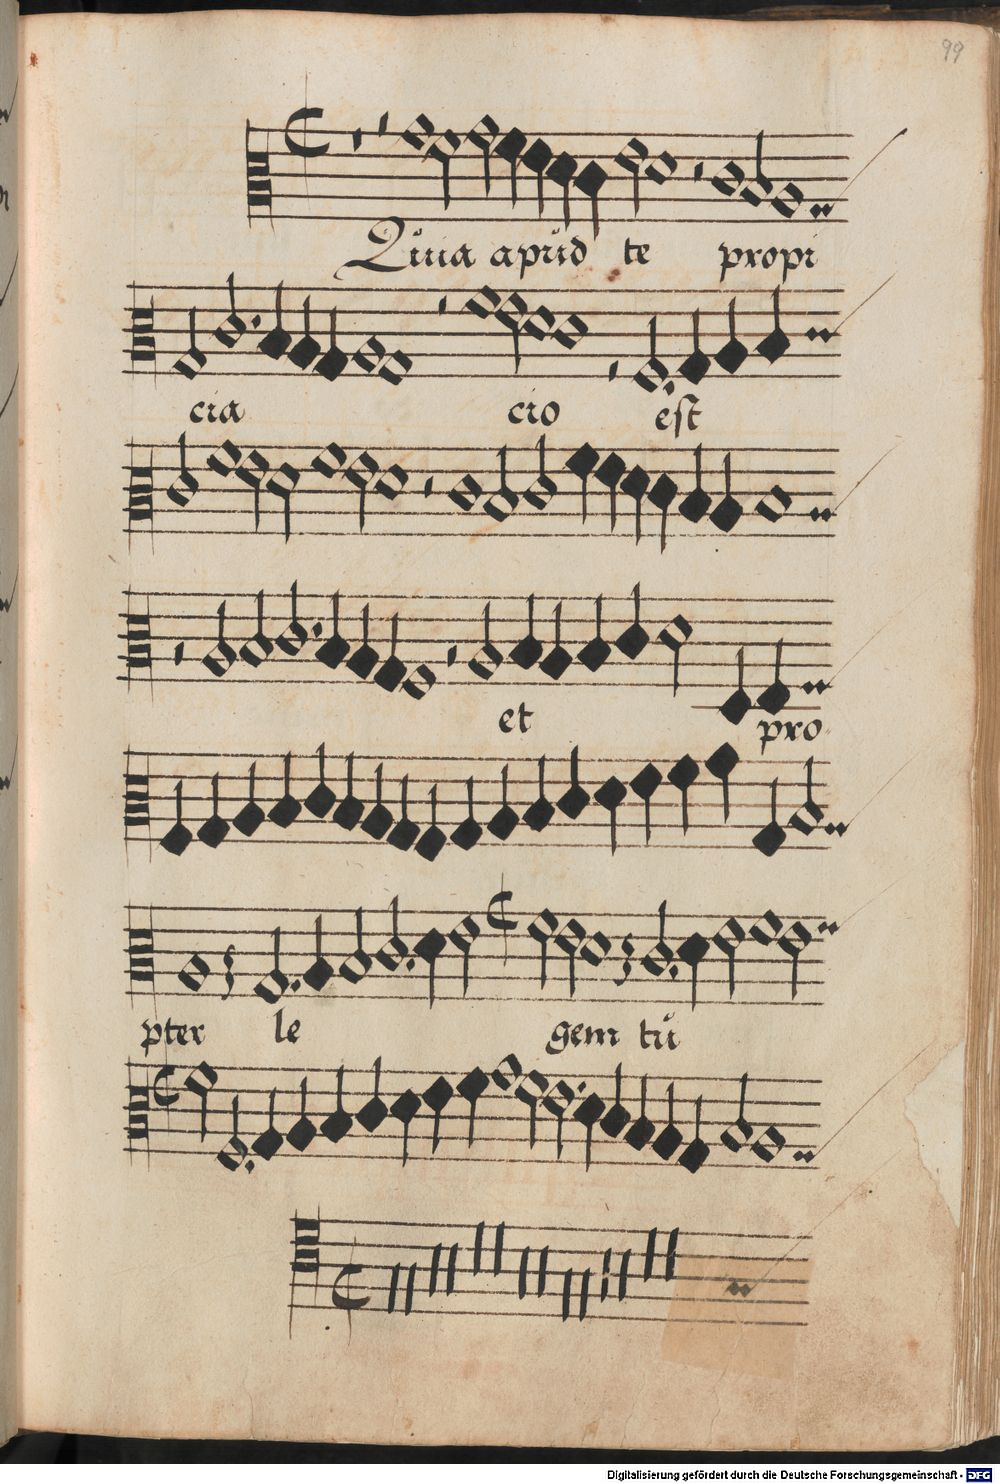 99
Quia apud te propi
cia cio est
et pro
pter le gem tu
Digitalisierung gefördert durch die Deutsche Forschungsgemeinschaft - DFG